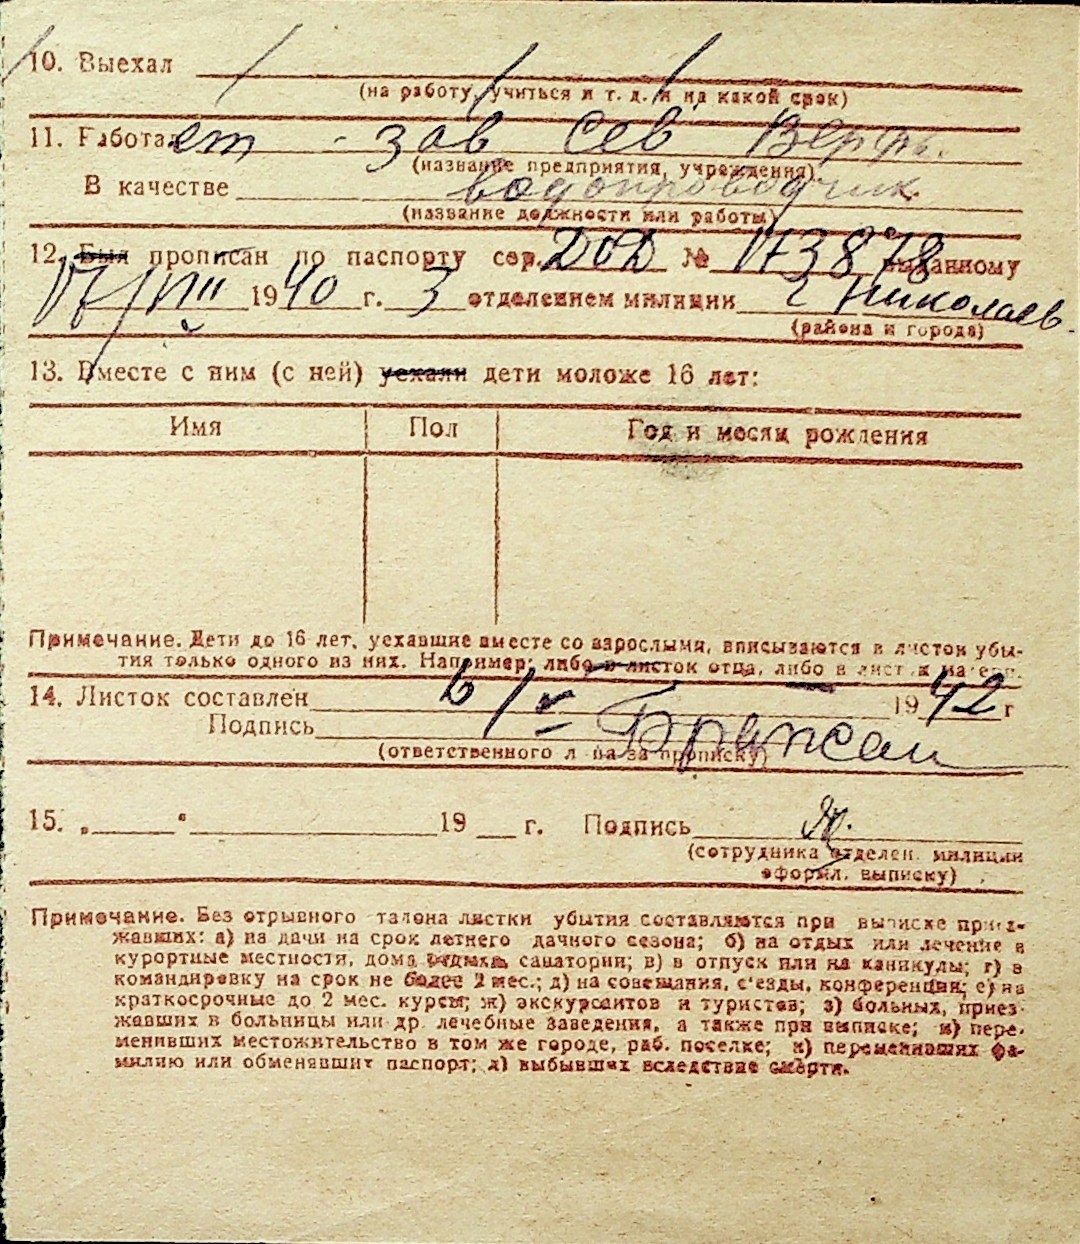 10. Выехал
(на работу, учиться и т. д. и на какой срок)
11. Работает - зав Сев Верфь.
(название предприятия, учреждения)
В качестве водопроводчик.
(название должности или работы)
12. Был прописан по паспорту сер. № 173878 выданному
19 40 г. 3 отделением милиции г Николаев
(района и города)
13. Вместе с ним (с ней) уехали дети моложе 16 лет:
Имя Пол Год и месяц рождения
Примечание. Дети до 16 лет, уехавшие вместе со взрослыми, вписываются в листок убы-
тия только одного из них. Например: либо в листок отца, либо в листок матери.
14. Листок составлен 6/V 1942 г
Подпись
(ответственного лица за прописку)
15. „ " 19 г. Подпись
(сотрудника отделен. милиции
оформл. выписку)
Примечание. Без отрывного талона листки убытия составляются при выписке приез-
жавших: а) на дачи на срок летнего дачного сезона; б) на отдых или лечение в
курортные местности, дома отдыха, санатории; в) в отпуск или на каникулы; г) в
командировку на срок не более 2 мес.; д) на совещания, с'езды, конференции; е) на
краткосрочные до 2 мес. курсы; ж) экскурсантов и туристов; з) больных, приез-
жавших в больницы или др. лечебные заведения, а также при выписке; и) пере-
менивших местожительство в том же городе, раб. поселке; к) переменивших фа-
милию или обменявших паспорт; л) выбывших вследствие смерти.